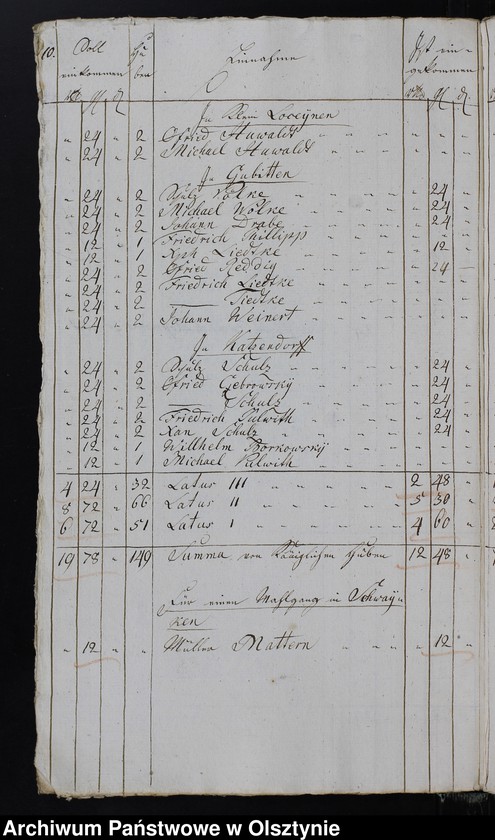 10. Soll Hu Einnahme Ist ein-
einkommen ben gekommen
In Klein Loceynen
" 24 " 2 Gfried Huwaldt
" 24 " 2 Michael Huwaldt
In Gubitten
" 24 " 2 Schulz Wölke " 24 "
" 24 " 2 Michael Wölke " 24 "
" 24 " 2 Johann Drabe " 24 "
" 12 " 1 Friedrich Phillipp
" 12 " 1 Liedtke " 12 "
" 24 " 2 Gfried Reddig " 24
" 24 " 2 Friedrich Liedtke
" 24 " 2 —— Tiedtke
" 24 " 2 Johann Weinert
In Katzendorff
" 24 " 2 Schulz Schulz " 24 "
" 24 " 2 Gfried Gebrowsky " 24 "
" 24 " 2 —— Schulz " 24 "
" 24 " 2 Friedrich Palwith " 24 "
" 24 " 2 Schulz " 24 "
" 12 " 1 Willhelm Borkowsky
" 12 " 1 Michael Palwith
4 24 " 32 Latus III 2 48 "
8 72 " 66 Latus II 5 30 "
6 72 " 51 Latus I 4 60 "
19 78 " 149 Summa von Hüben 12 48 "
Für einen Mahlgang in Schwayn
ken
" 12 " Müller Mattern " 12 "
Archiwum Państwowe w Olsztynie